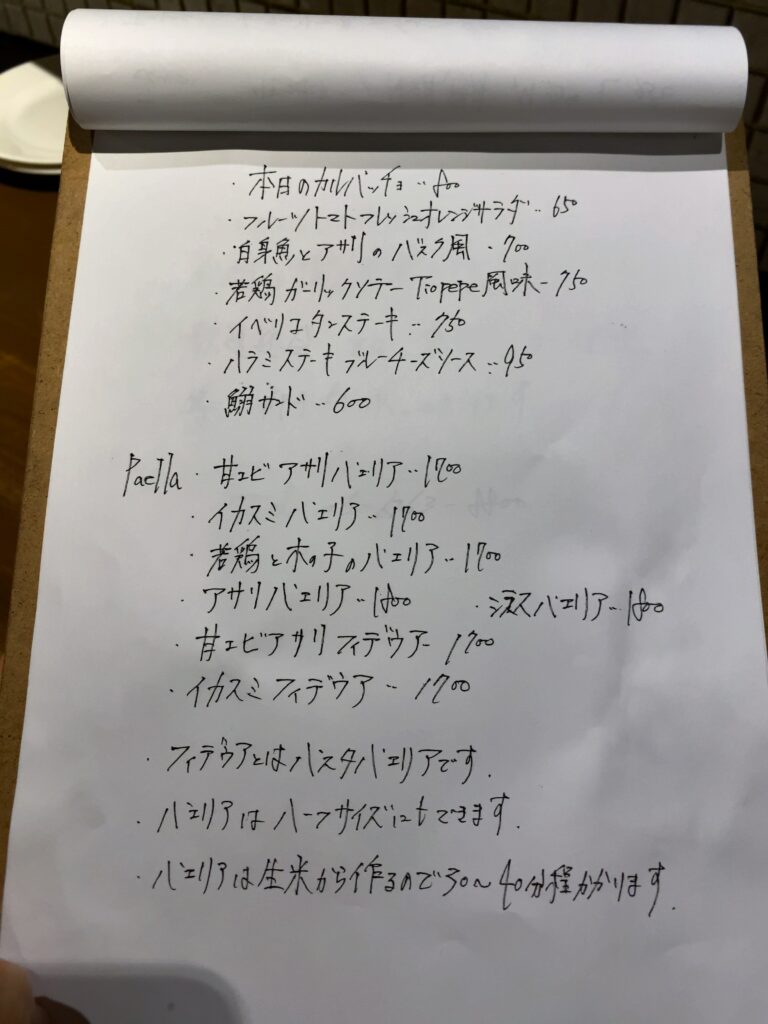 ・本日のカルパッチョ‥800
・フルーツトマトフレッシュオレンジサラダ‥650
・白身魚とアサリのバスク風 - 700
・若鶏ガーリックソテー Tiopepe風味 - 750
・イベリコタンステーキ‥750
・ハラミステーキブルーチーズソース‥950
・鰯サンド‥600
Paella・甘エビアサリパエリア‥1700
・イカスミパエリア‥1700
・若鶏と木の子のパエリア‥1700
・アサリパエリア‥1800 ・シラスパエリア‥1800
・甘エビアサリフィデウアー 1700
・イカスミフィデウア‥1700
・フィデウアとはパスタパエリアです.
・パエリアはハーフサイズにもできます.
・パエリアは生米から作るので30〜40分程かかります.